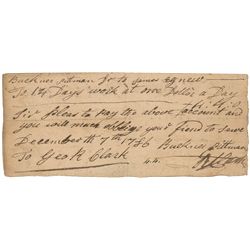 Buckner pittman Dr to James
To 14 Days work at one Doller a Day
Sir pleas to pay the above account and
you will much oblige your frend to sarve
December th 7th 1786 Buckner Pittman
To Geo R Clark